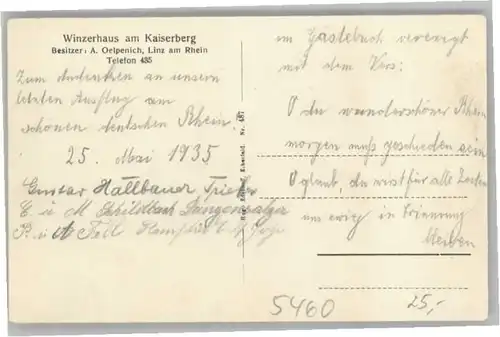 Winzerhaus am Kaiserberg
Besitzer: A. Oelpenich, Linz am Rhein
Telefon 485
Zum Andenken an unsern
letzten Ausflug am
schönen deutschen Rhein.
25. Mai 1935
Gustav Hallbauer
E. u M. Schildbach Langensalza
P. u A
im Gästebuch verewigt
mit dem Vers:
O du wunderschöner Rhein
morgen muß geschieden sein
O glaub, du wirst für alle Zeiten
uns ewig in Erinnerung
5460
25,-